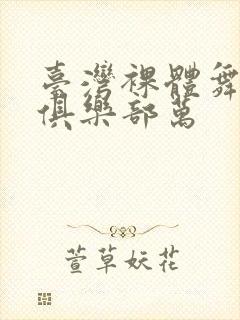 臺灣裸體舞
俱樂部萬
萱草妖花